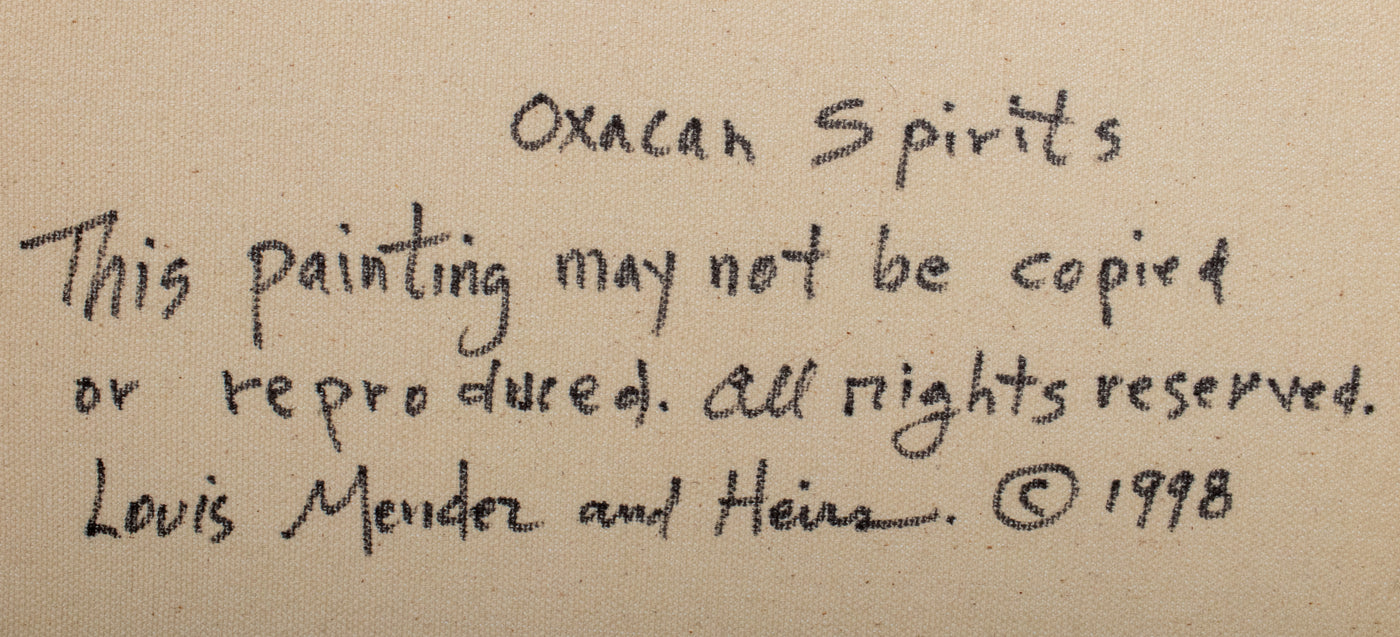 Oxacan Spirits
This painting may not be copied
or reproduced. All rights reserved.
Louis Mendez and Heirs. © 1998